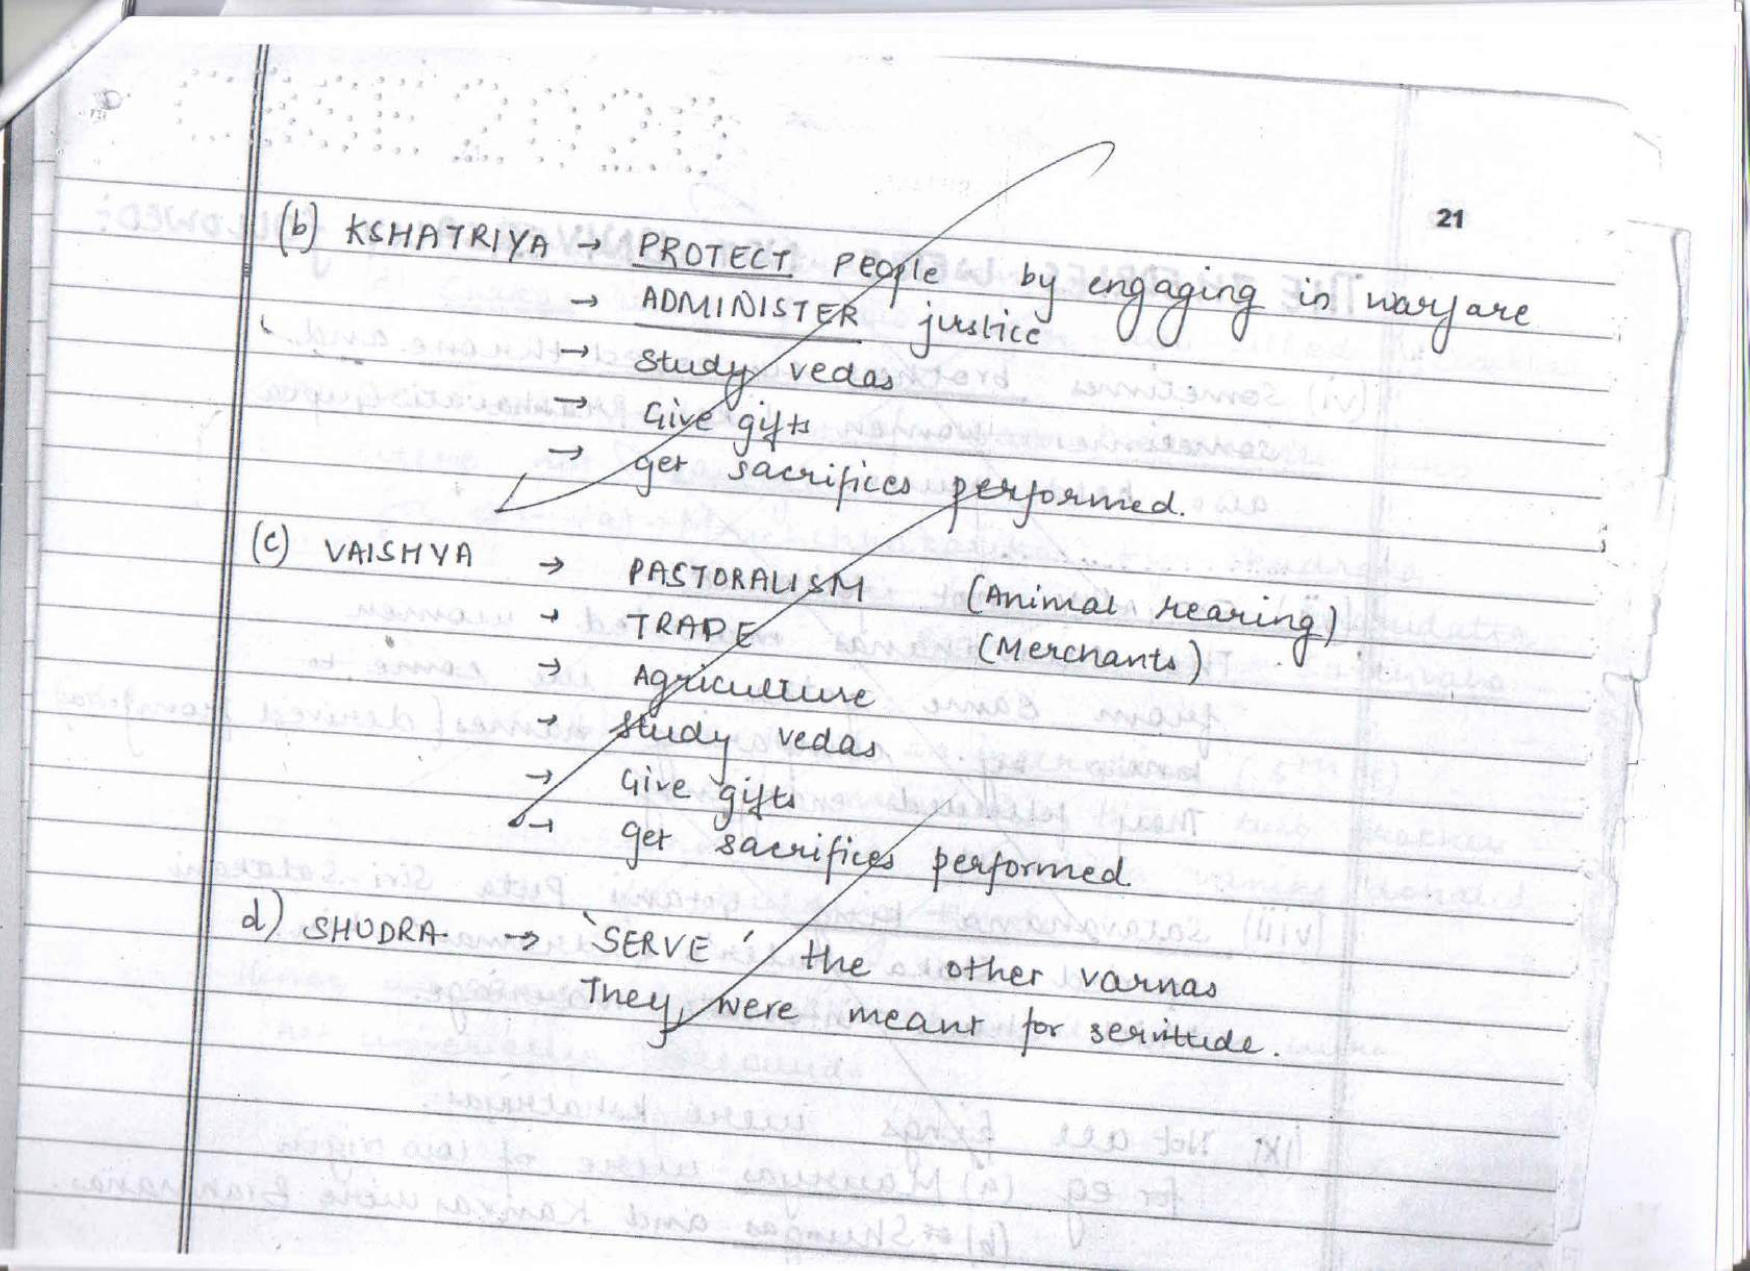 CBSE 2020
21
(b) KSHATRIYA → PROTECT people by engaging in warfare
→ ADMINISTER justice
→ Study vedas
→ Give gifts
→ get sacrifices performed.
(c) VAISHYA → PASTORALISM (Animal rearing)
→ TRADE (Merchants)
→ Agriculture
→ Study vedas
→ Give gifts
→ get sacrifices performed.
d) SHUDRA → `SERVE´ the other varnas
They were meant for servitude.